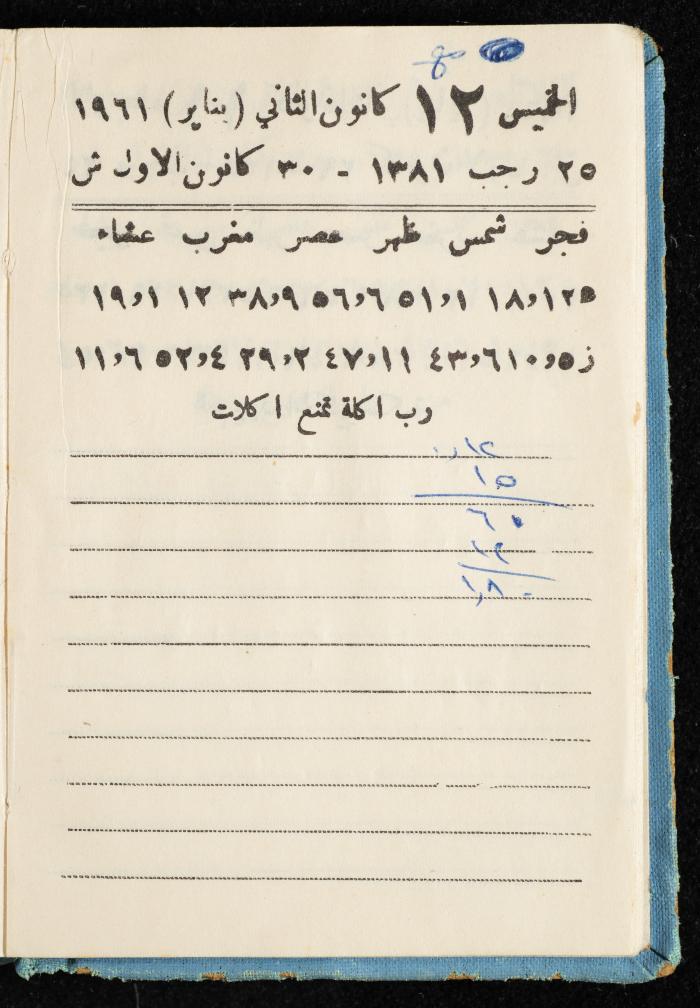 الخميس ١٢ كانون الثاني (يناير) ١٩٦١
٢٥ رجب ١٣٨١ - ٣٠ كانون الاول ش
فجر شمس ظهر عصر مغرب عشاء
ه١٢و١٨ ١و٥١ ٦و٥٦ ٩و٣٨ ١٢ ١و١٩
ز٥و١٠ ٦و٤٣ ١١و٤٧ ٢و٢٩ ٤و٥٢ ٦و١١
رب اكلة تمنع اكلات
١٥
٦٠
١٢